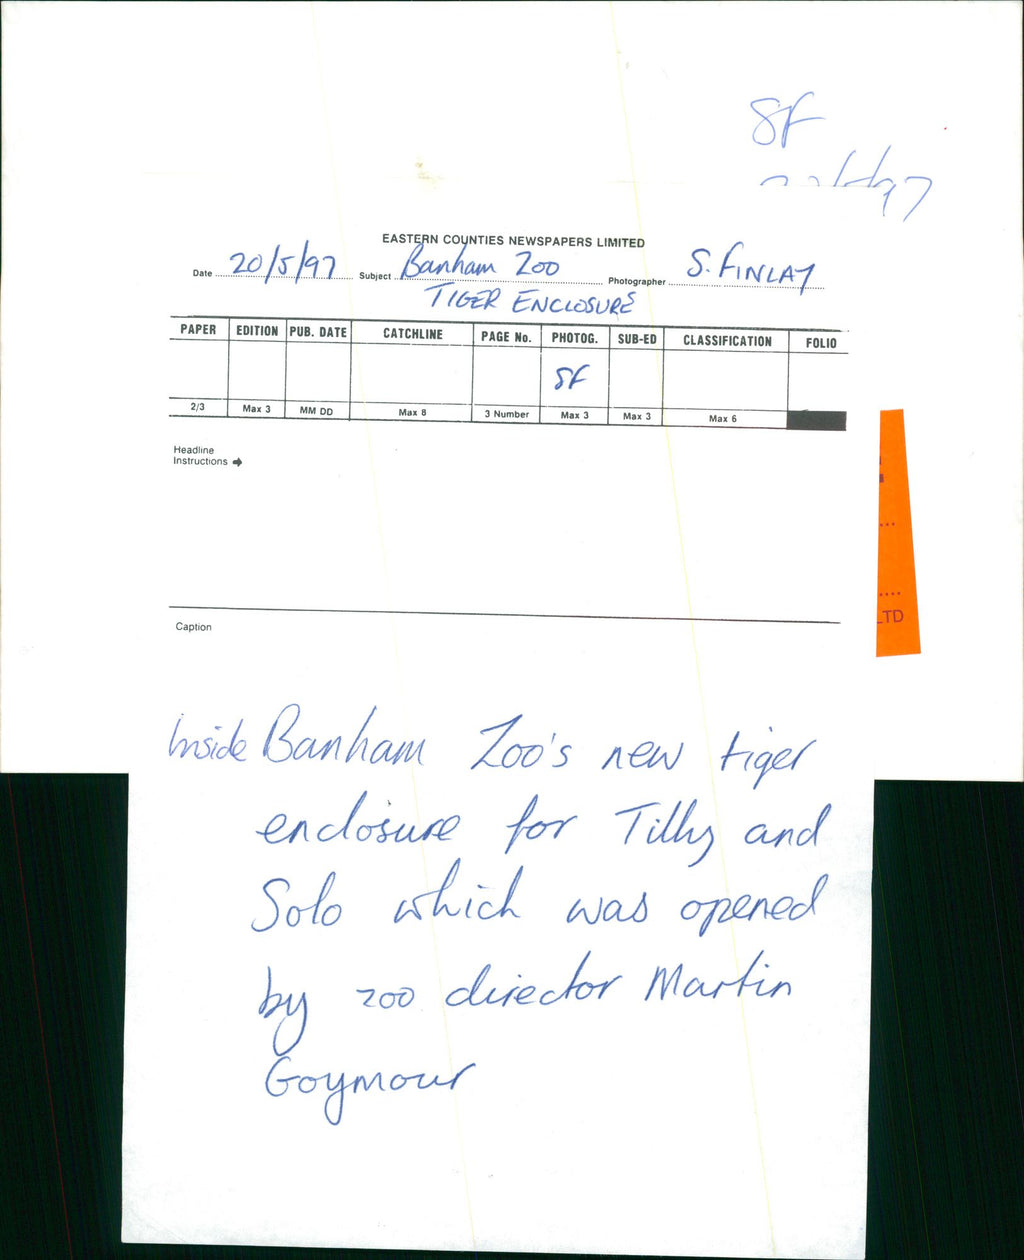 SF
EASTERN COUNTIES NEWSPAPERS LIMITED
Date 20/5/97 Subject Banham Zoo Photographer S. FINLAY
TIGER ENCLOSURE
PAPER EDITION PUB. DATE CATCHLINE PAGE No. PHOTOG. SUB-ED CLASSIFICATION FOLIO
SF
2/3 Max 3 MM DD Max 8 3 Number Max 3 Max 3 Max 6
Headline
Instructions →
LTD
Caption
Inside Banham Zoo's new tiger
enclosure for Tilly and
Solo which was opened
by zoo director Martin
Goymour